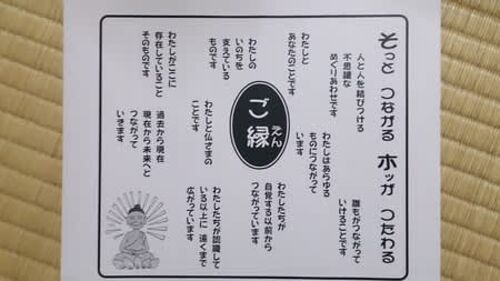 そっと つながる ホッが つたわる
人と人を結びつける
不思議な
めぐりあわせです
誰もがつながって
いけることです
わたしと
あなたのことです
わたしはあらゆる
ものにつながって
います
わたしの
いのちを
支えている
ものです
ご縁
えん
わたしたちが
自覚する以前から
つながっています
わたしと仏さまの
ことです
わたしがここに
存在していること
そのものです
過去から現在
現在から未来へと
つながって
いきます
わたしたちが認識して
いる以上に 遠くまで
広がっています